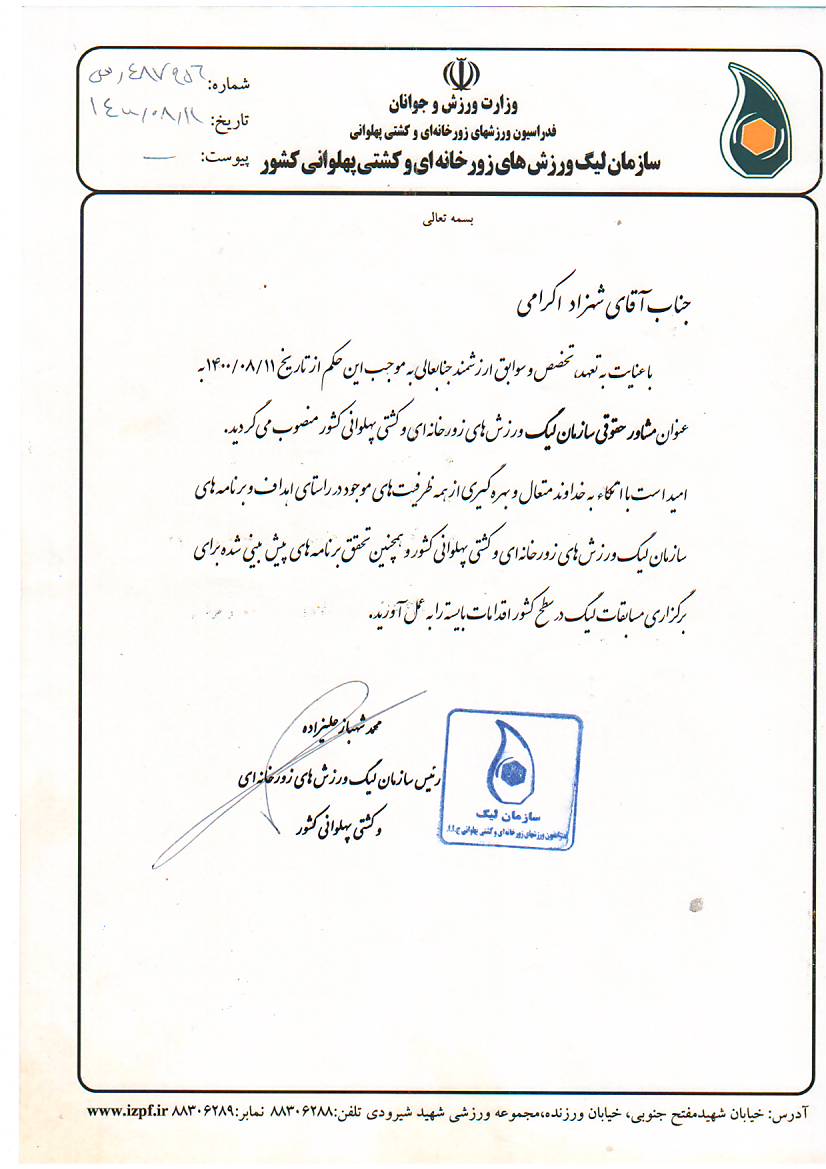 وزارت ورزش و جوانان
فدراسیون ورزشهای زورخانه‌ای و کشتی پهلوانی
سازمان لیگ ورزش های زورخانه ای و کشتی پهلوانی کشور
شماره:
تاریخ: ۱۴۰۰/۰۸/۱۱
پیوست: —
بسمه تعالی
جناب آقای شهزاد اکرامی
با عنایت به تعهد، تخصص و سوابق ارزشمند جنابعالی به موجب این حکم از تاریخ ۱۴۰۰/۰۸/۱۱ به
عنوان مشاور حقوقی سازمان لیگ ورزش های زورخانه ای و کشتی پهلوانی کشور منصوب می گردید.
امید است با اتکاء به خداوند متعال و بهره گیری از همه ظرفیت های موجود در راستای اهداف و برنامه های
سازمان لیگ ورزش های زورخانه ای و کشتی پهلوانی کشور و همچنین تحقق برنامه های پیش بینی شده برای
برگزاری مسابقات لیگ در سطح کشور اقدامات بایسته را به عمل آورید.
محمد شهباز علیزاده
رئیس سازمان لیگ ورزش های زورخانه ای
و کشتی پهلوانی کشور
سازمان لیگ
فدراسیون ورزشهای زورخانه ای و کشتی پهلوانی ج.ا.ا.
آدرس: خیابان شهیدمفتح جنوبی، خیابان ورزنده،مجموعه ورزشی شهید شیرودی تلفن:۸۸۳۰۶۲۸۸ نمابر:۸۸۳۰۶۲۸۹ www.izpf.ir